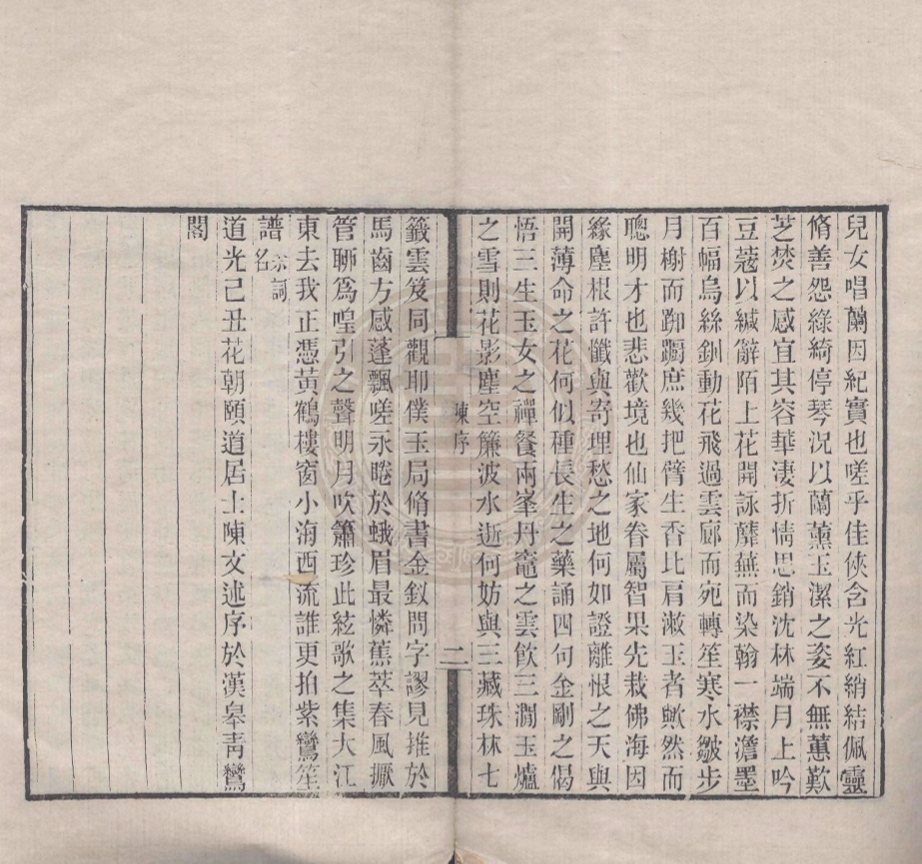 兒女唱蘭因紀實也嗟乎佳俠含光紅綃結佩靈
脩善怨綠綺停琴況以蘭薰玉潔之姿不無蕙歎
芝焚之感宜其容華淒折情思銷沈林端月上吟
豆蔻以緘辭陌上花開詠蘼蕪而染翰一襟澹墨
百幅烏絲釧動花飛過雲廊而宛轉笙寒水皺步
月榭而踟躕庶幾把臂生香比肩漱玉者歟然而
聰明才也悲歡境也仙家眷屬智果先栽佛海因
緣塵根許懺與寄埋愁之地何如證離恨之天與
開薄命之花何似種長生之藥誦四句金剛之偈
悟三生玉女之禪餐兩峯丹竈之雲飲三澗玉爐
之雪則花影塵空簾波水逝何妨與三藏珠林七
陳序
二
籤雲笈同觀耶僕玉局脩書金釵問字謬見推於
馬齒方感蓬飄嗟永睠於蛾眉最憐蕉萃春風擫
管聊爲喤引之聲明月吹簫珍此絃歌之集大江
東去我正憑黃鶴樓窗小海西流誰更拍紫鸞笙
譜宋詞名
道光己丑花朝頤道居士陳文述序於漢皋靑鸞
閣